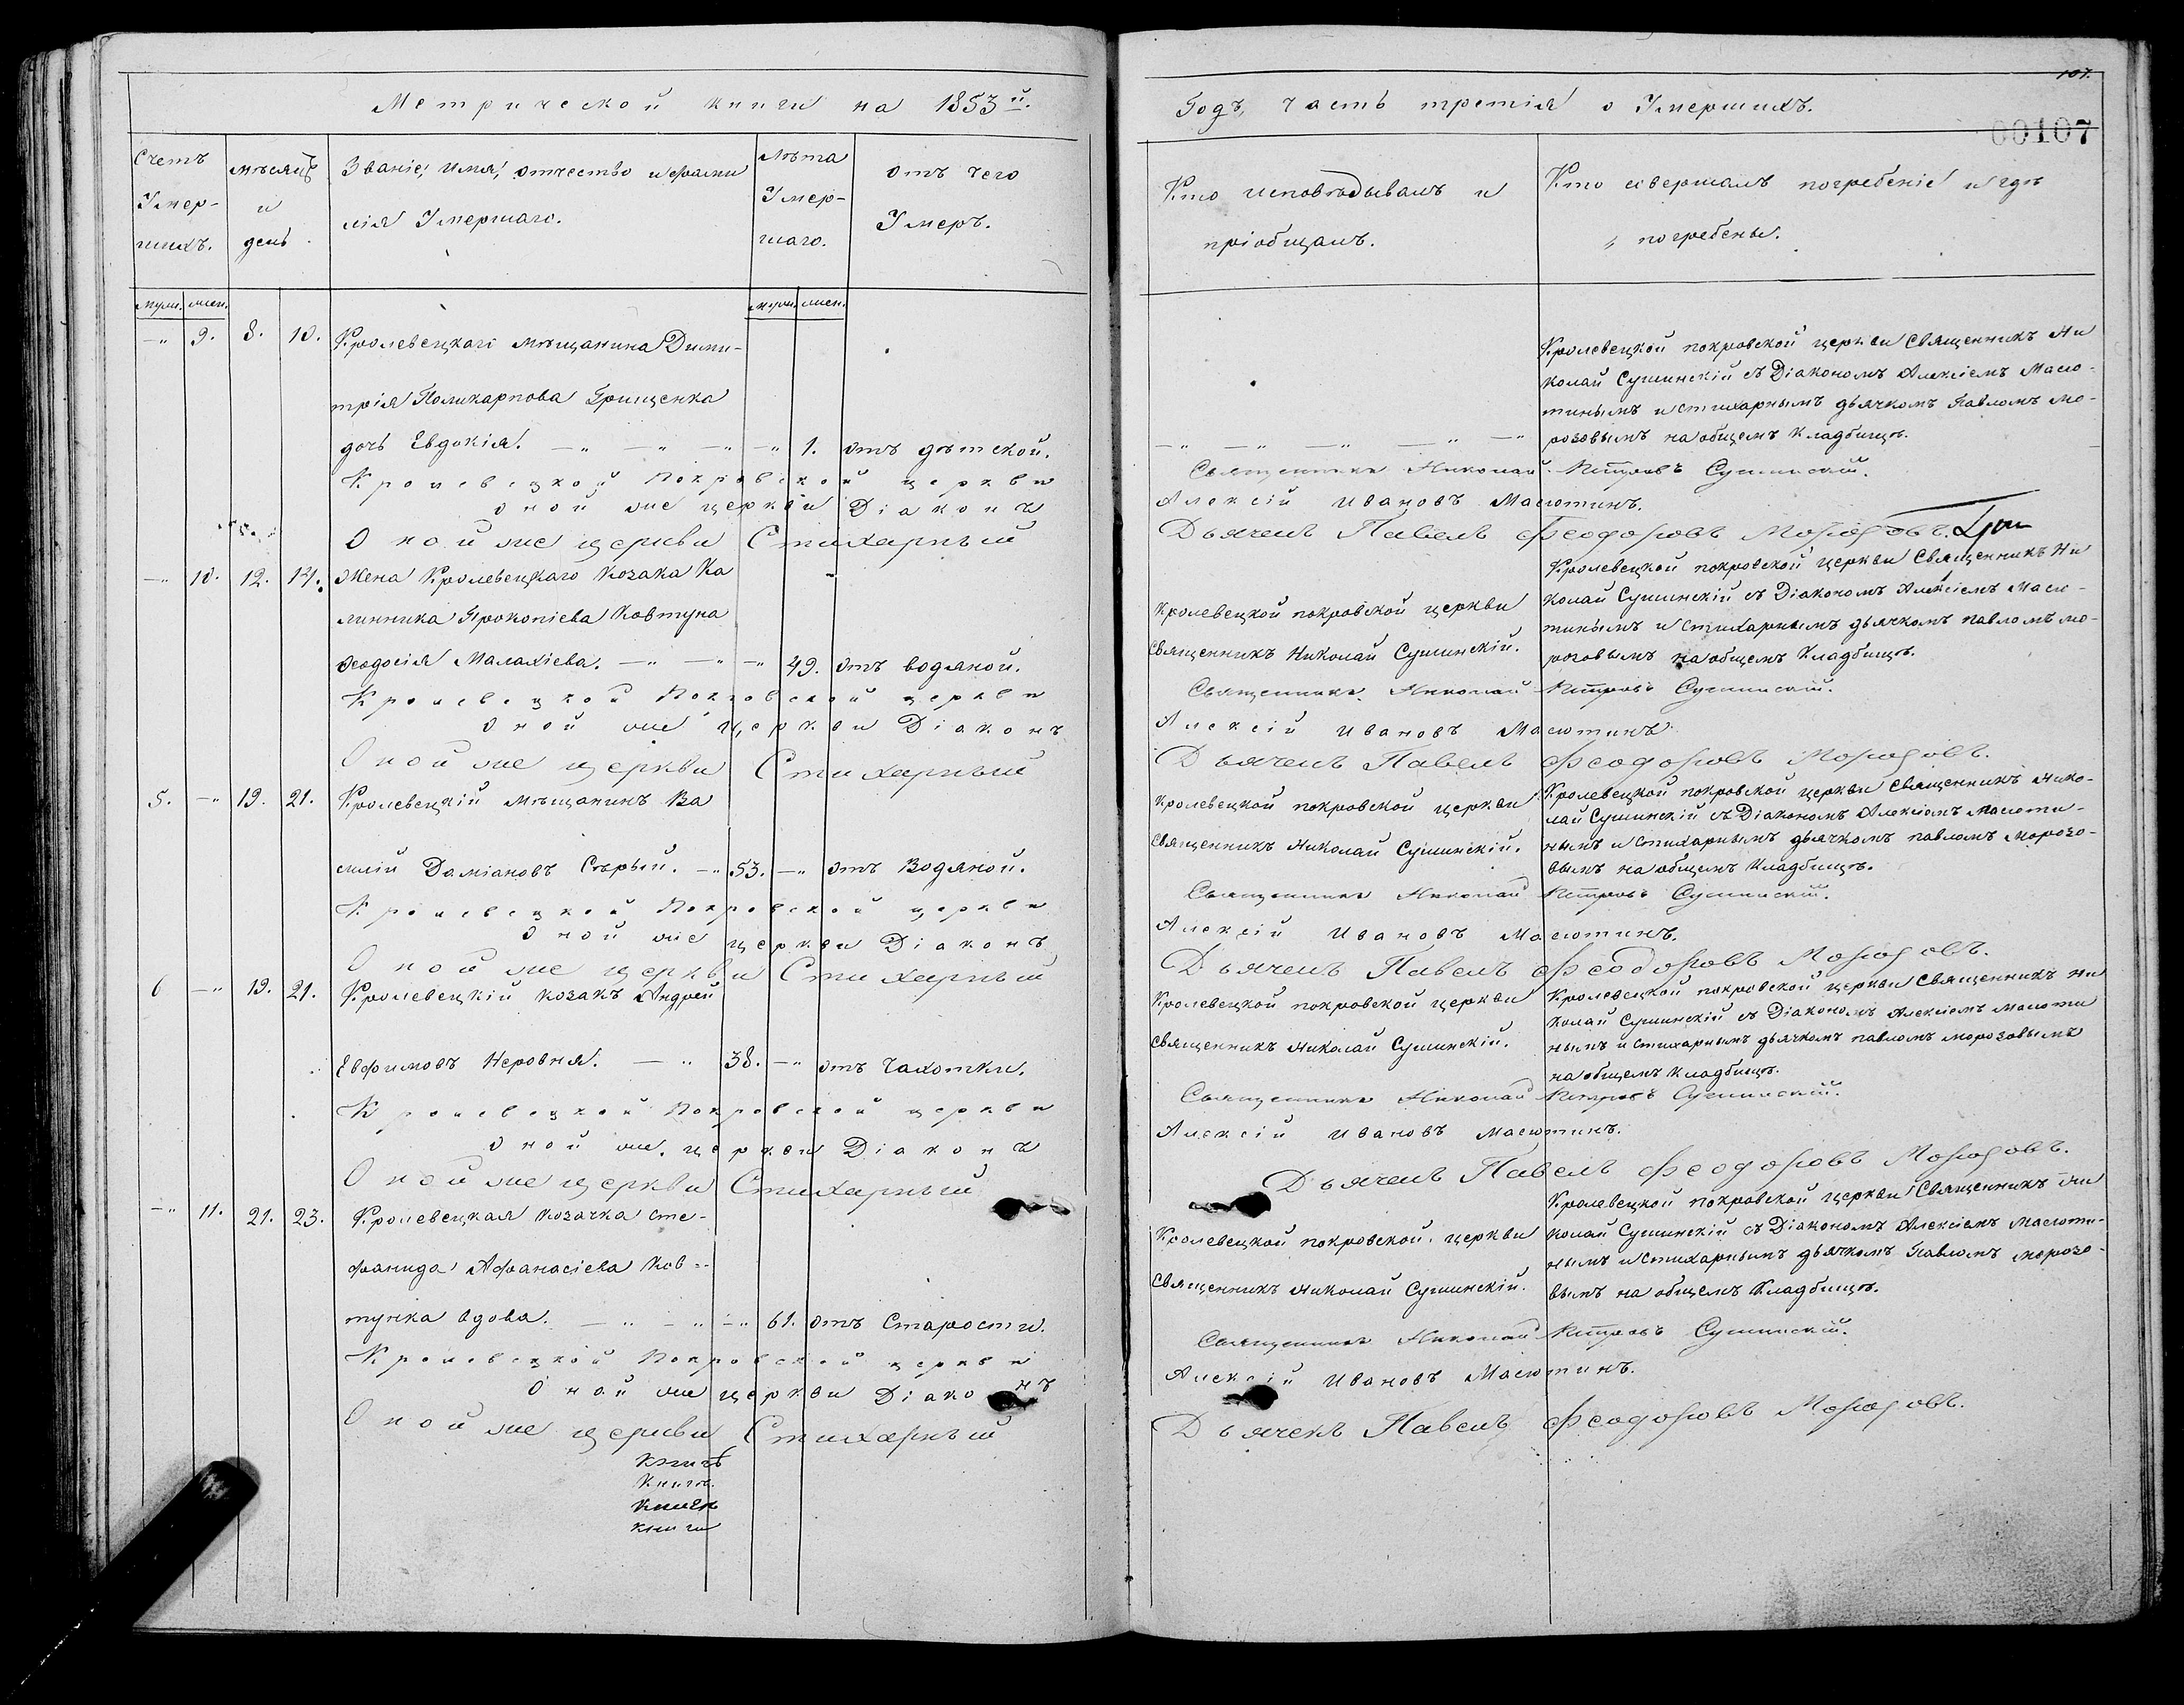 Метрической книги на 1853й.
Счетъ Умер-шихъ.
мѣсяцъ и день.
Званіе, имя, отчество и фами
лія Умершаго.
Лѣта Умер-шаго.
отъ чего Умеръ.
муж. жен.
муж. жен.
—" 9. 8. 10. Кролевецкаго мѣщанина Дими-
трія Поликарпова Грищенка
дочь Евдокія. —" —" —" —" 1. отъ дѣтской.
Кролевецкой Покровской церкви
оной же церкви Діаконъ
Оной же церкви Стихарный
—" 10. 12. 14. Жена Кролевецкаго козака Ка
линника Прокопіева Ковтуна
Феодосія Малахіева. —" —" —" 49. отъ водяной.
Кролевецкой Покровской церкви
оной же церкви Діаконъ
Оной же церкви Стихарный
5. —" 19. 21. Кролевецкій мѣщанинъ Ва
силій Даміановъ Сѣрый. —" 53. —" отъ Водяной.
Кролевецкой Покровской церкви
оной же церкви Діаконъ
Оной же церкви Стихарный
6 —" 19. 21. Кролевецкій козакъ Андрей
Евфимовъ Неровня. —" 38. —" отъ Чахотки.
Кролевецкой Покровской церкви
оной же церкви Діаконъ
Оной же церкви Стихарный
—" 11. 21. 23. Кролевецкая козачка Сте-
фанида Афанасіева Ков-
тунка вдова. —" —" —" 61. отъ Старости.
Кролевецкой Покровской церкви
Оной же церкви Діаконъ
Оной же церкви Стихарный
Книгъ
Книгъ
Книгъ
книги
107.
00107
Годъ, часть третія о Умершихъ.
Кто исповѣдывалъ и
пріобщалъ.
Кто совершалъ погребеніе и гдѣ
погребены.
Кролевецкой покровской церкви Священникъ Ни
колай Сушинскій съ Діакономъ Алексіемъ Масю-
тинымъ и стихарнымъ дьячкомъ Павломъ Мо-
—" —" —" —" —" розовымъ на общемъ Кладбищѣ.
Священникъ Николай Петровъ Сушинскій.
Алексій Ивановъ Масютинъ.
Дьячекъ Павелъ Феодоровъ Морозовъ.
Кролевецкой покровской церкви Священникъ Ни
Кролевецкой покровской церкви колай Сушинскій съ Діакономъ Алексіемъ Масю-
тинымъ и Стихарнымъ дьячкомъ павломъ мо-
Священникъ Николай Сушинскій. розовымъ на общемъ Кладбищѣ.
Священникъ Николай Петровъ Сушинскій.
Алексій Ивановъ Масютинъ.
Дьячекъ Павелъ Феодоровъ Морозовъ.
Кролевецкой покровской церкви Кролевецкой покровской церкви Священникъ Нико-
лай Сушинскій съ Діакономъ Алексіемъ Масюти-
Священникъ Николай Сушинскій. нымъ и Стихарнымъ дьячкомъ павломъ Морозо-
вымъ на общемъ Кладбищѣ.
Священникъ Николай Петровъ Сушинскій.
Алексій Ивановъ Масютинъ.
Дьячекъ Павелъ Феодоровъ Морозовъ.
Кролевецкой покровской церкви Кролевецкой покровской церкви Священникъ Ни
колай Сушинскій съ Діакономъ Алексіемъ Масюти
Священникъ Николай Сушинскій. нымъ и стихарнымъ дьячкомъ павломъ морозовымъ
на общемъ Кладбищѣ.
Священникъ Николай Петровъ Сушинскій.
Алексій Ивановъ Масютинъ.
Дьячекъ Павелъ Феодоровъ Морозовъ.
Кролевецкой покровской церкви Священникъ Ни
Кролевецкой покровской церкви колай Сушинскій съ Діакономъ Алексіемъ Масюти-
нымъ и Стихарнымъ дьячкомъ Павломъ морозо-
Священникъ Николай Сушинскій. вымъ на общемъ Кладбищѣ.
Священникъ Николай Петровъ Сушинскій.
Алексій Ивановъ Масютинъ.
Дьячекъ Павелъ Феодоровъ Морозовъ.